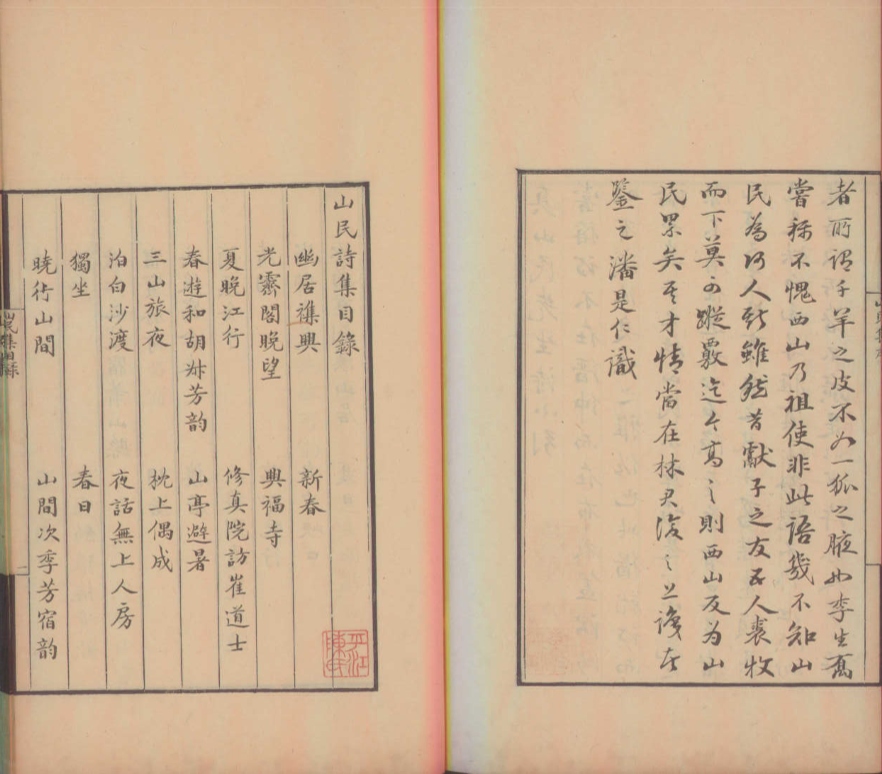 者所謂千羊之皮不如一狐之腋也李生喬
嘗稱不愧西山乃祖使非此語幾不知山
民為何人斯雖然昔獻子之友五人裘牧
而下莫可蹤覈迄今高之則西山反為山
民累矣其才情當在林君復之上識者
鑒之潘是仁識
山民詩集目錄
幽居襍興 新春
光霽閣晚望 興福寺
夏晚江行 修真院訪崔道士
春遊和胡叔芳韵 山亭避暑
三山旅夜 枕上偶成
泊白沙渡 夜話無上人房
獨坐 春日
曉行山間 山間次季芳宿韵
平江陳氏